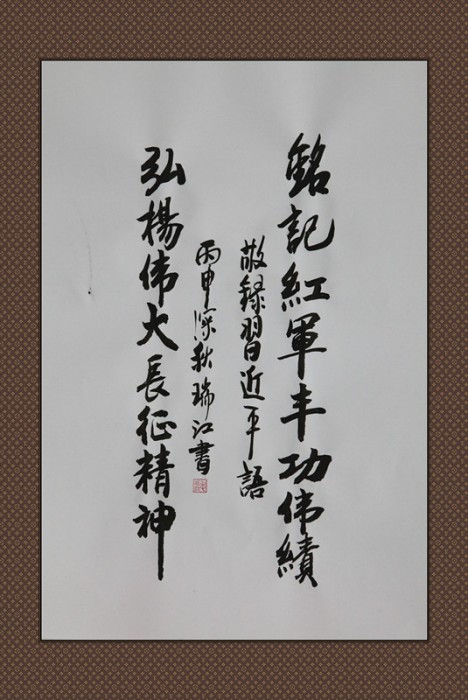 銘記紅軍丰功伟績
敬録習近平語
丙申深秋瑞江書
弘楊伟大長征精神